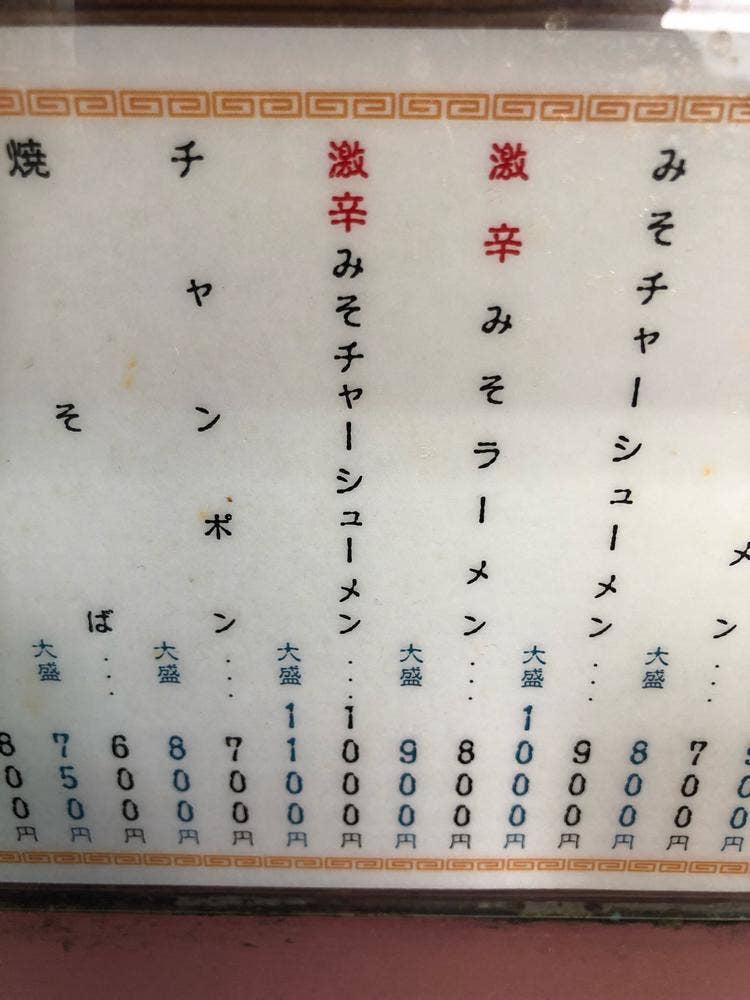 メン……700円
大盛 800円
みそチャーシューメン……900円
大盛 1000円
激辛みそラーメン……800円
大盛 900円
激辛みそチャーシューメン……1000円
大盛 1100円
チャンポン……700円
大盛 800円
焼そば……600円
大盛 750円
800円